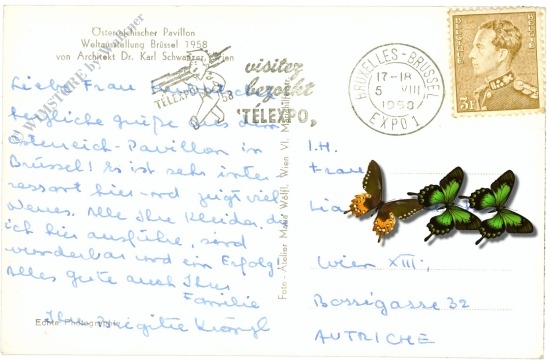 Österreichischer Pavillon
Weltausstellung Brüssel 1958
von Architekt Dr. Karl Schwanzer, Wien
Liebe Frau
herzliche Grüße aus dem
Österreich-Pavillon in
Brüssel! Es ist sehr inter
essant hier und zeigt viel
Neues. Alle Ihre Kleider, die
ich hier ausführe, sind
wunderbar und ein Erfolg.
Alles gute auch Ihrer
Familie
Ihre Brigitte
Echte Photographie
Foto - Atelier Maria Wölfl, Wien VI.
TELEXPO 58
visitez
bezoekt
TELEXPO
BRUXELLES-BRUSSEL
17-18
5 VIII
1958
EXPO 1
BELGIE
BELGIQUE
3F
I.H.
Frau
Wien XIII,
Bossigasse 32
AUTRICHE
© WAMSTORE by Wallner